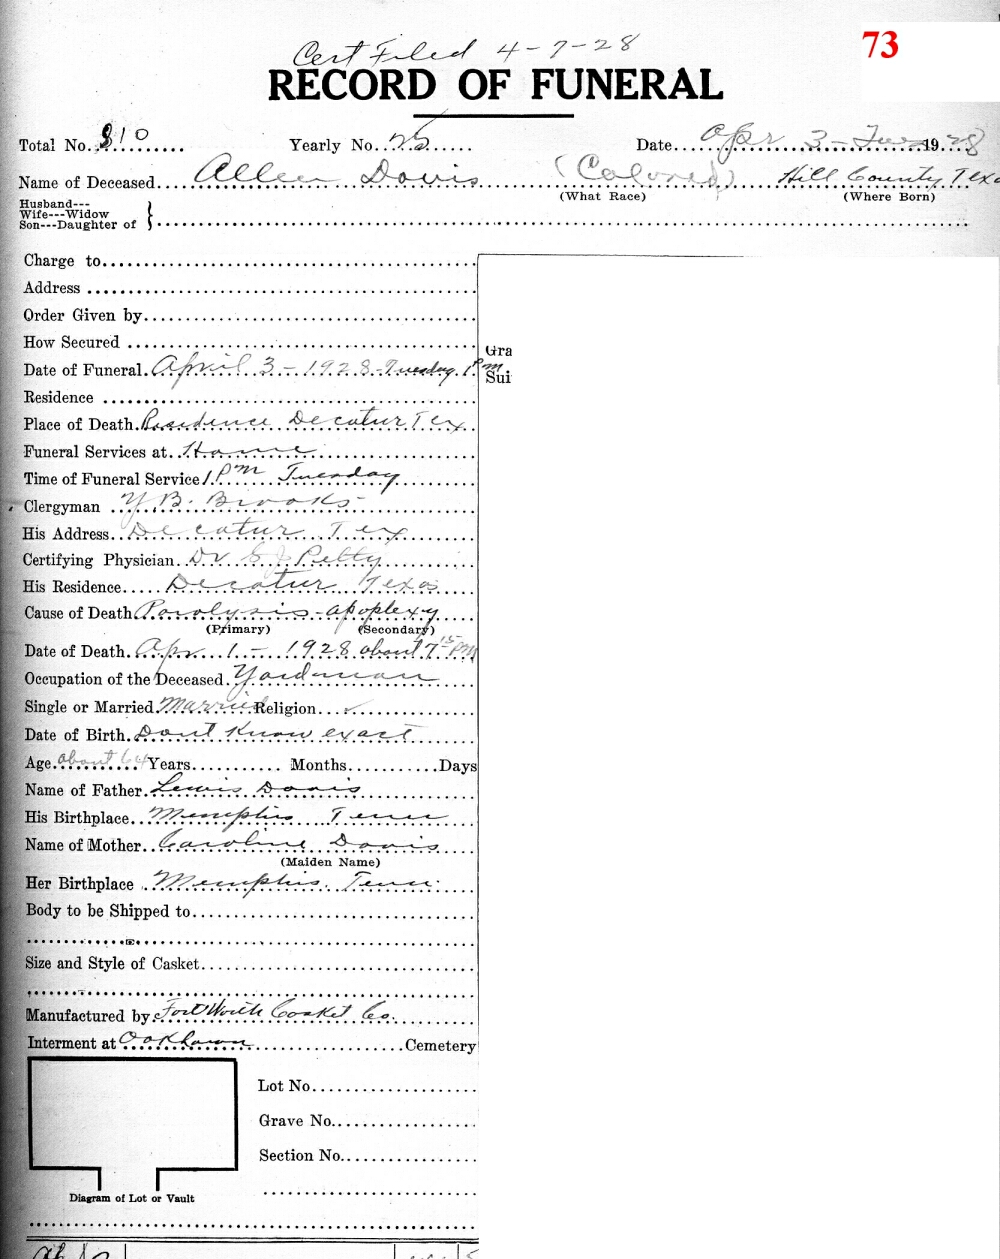 73
Cert Filed 4-7-28
RECORD OF FUNERAL
Total No. 810 Yearly No. 25 Date Apr 3-Tues 1928
Name of Deceased Allen Davis (Colored) Hill County Texa
(What Race) (Where Born)
Husband---
Wife---Widow
Son---Daughter of
Charge to
Address
Order Given by
How Secured
Gra
Date of Funeral April 3-1928-Tuesday 1 Pm
Sui
Residence
Place of Death Residence Decatur Tex
Funeral Services at Home
Time of Funeral Service 1 Pm Tuesday
Clergyman Y B. Brooks
His Address Decatur Tex
Certifying Physician Dr Petty
His Residence Decatur Texas
Cause of Death Paralysis - apoplexy
(Primary) (Secondary)
Date of Death Apr 1 - 1928 about 7 15 PM
Occupation of the Deceased Yardman
Single or Married Married Religion ✓
Date of Birth Dont Know exact
Age about 64 Years Months Days
Name of Father Lewis Davis
His Birthplace Memphis Tenn
Name of Mother Caroline Davis
(Maiden Name)
Her Birthplace Memphis. Tenn.
Body to be Shipped to
Size and Style of Casket
Manufactured by Fort Worth Casket Co.
Interment at Oaklawn Cemetery
Lot No
Grave No.
Section No.
Diagram of Lot or Vault